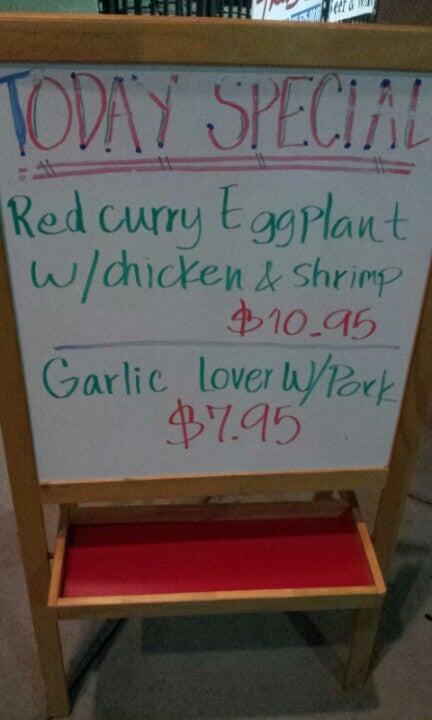 TODAY SPECIAL
Red curry Eggplant
w/chicken & shrimp
$10.95
Garlic lover w/Pork
$7.95